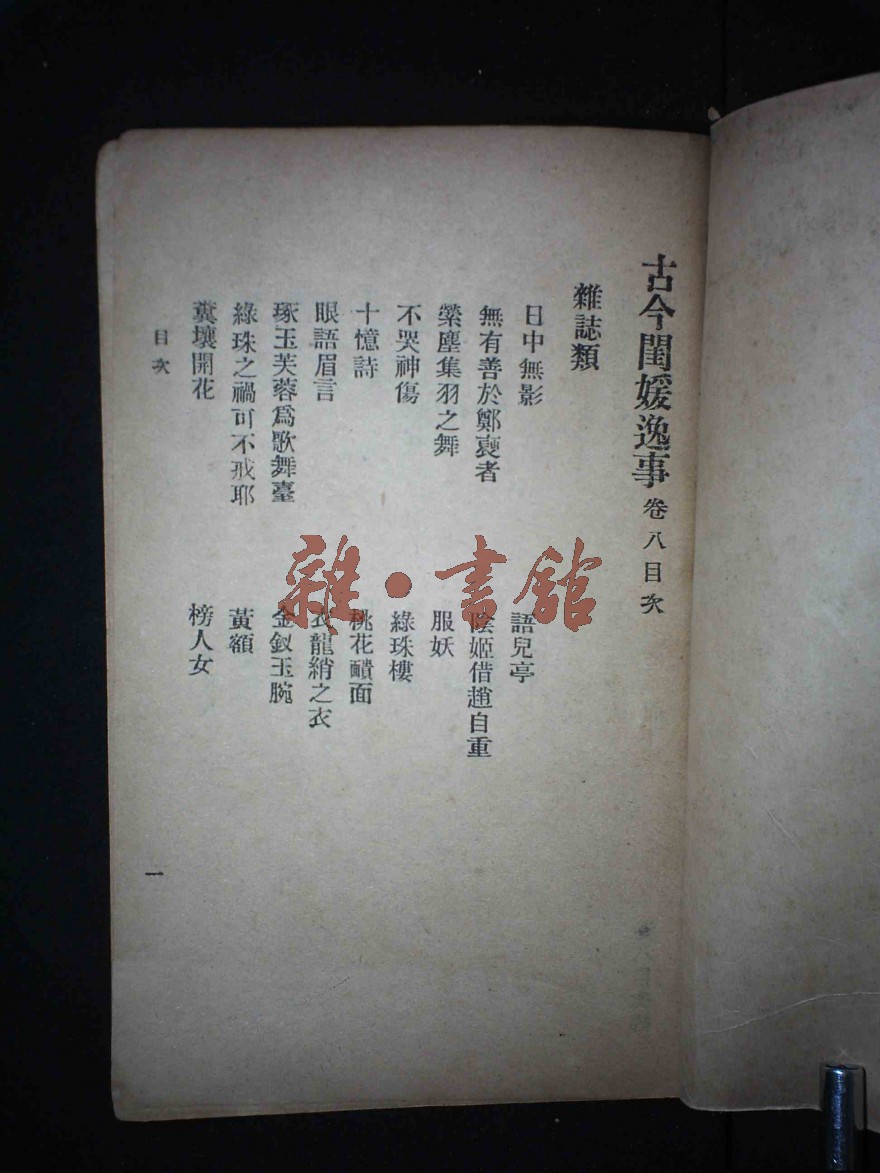 古今閨媛逸事 卷八目次
雜誌類
日中無影
語兒亭
無有善於鄭袖者
陰姬借趙自重
縈塵集羽之舞
服妖
不哭神傷
綠珠樓
十憶詩
桃花靧面
眼語眉言
衣龍綃之衣
琢玉芙蓉爲歌舞臺
金釵玉腕
綠珠之禍可不戒耶
黃額
糞壤開花
榜人女
目次
一
雜·書館